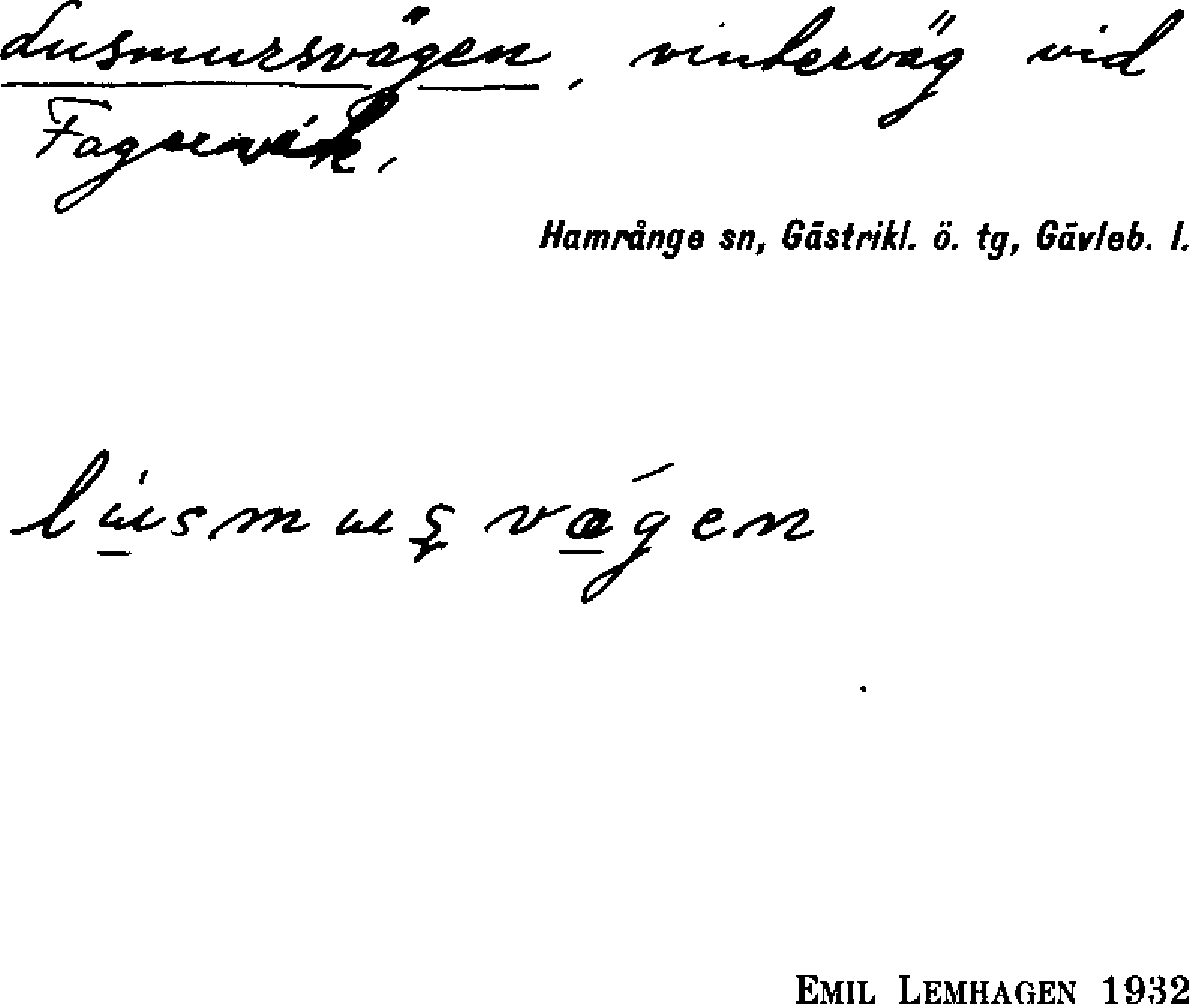 Lusmursvägen, vinterväg vid
Fagervik.
Hamrånge sn, Gästrikl. ö. tg, Gävleb. l.
lu̲̍smuʂ vǽ̲gen
EMIL LEMHAGEN 1932